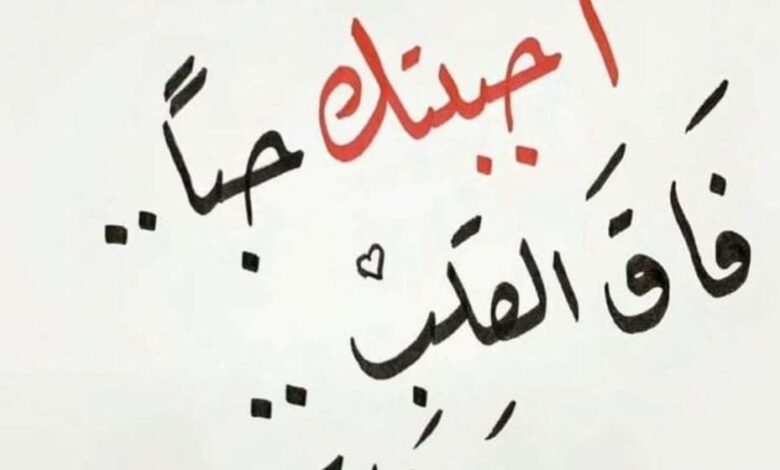 أحببتك حباً..
فَاقَ القلبْ..